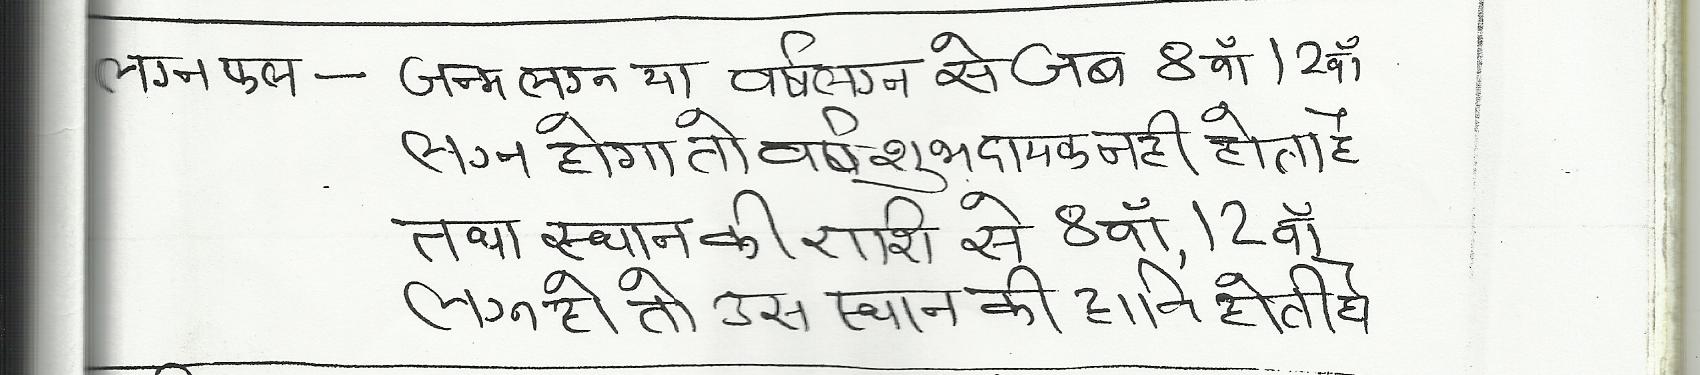 लग्न फल — जन्म लग्न या वर्षलग्न से जब 8 वाँ 12वाँ
लग्न होगा तो वर्ष शुभदायक नही होता है
तथा स्थान की राशि से 8वाँ, 12 वाँ
लग्न हो तो उस स्थान की हानि होती है